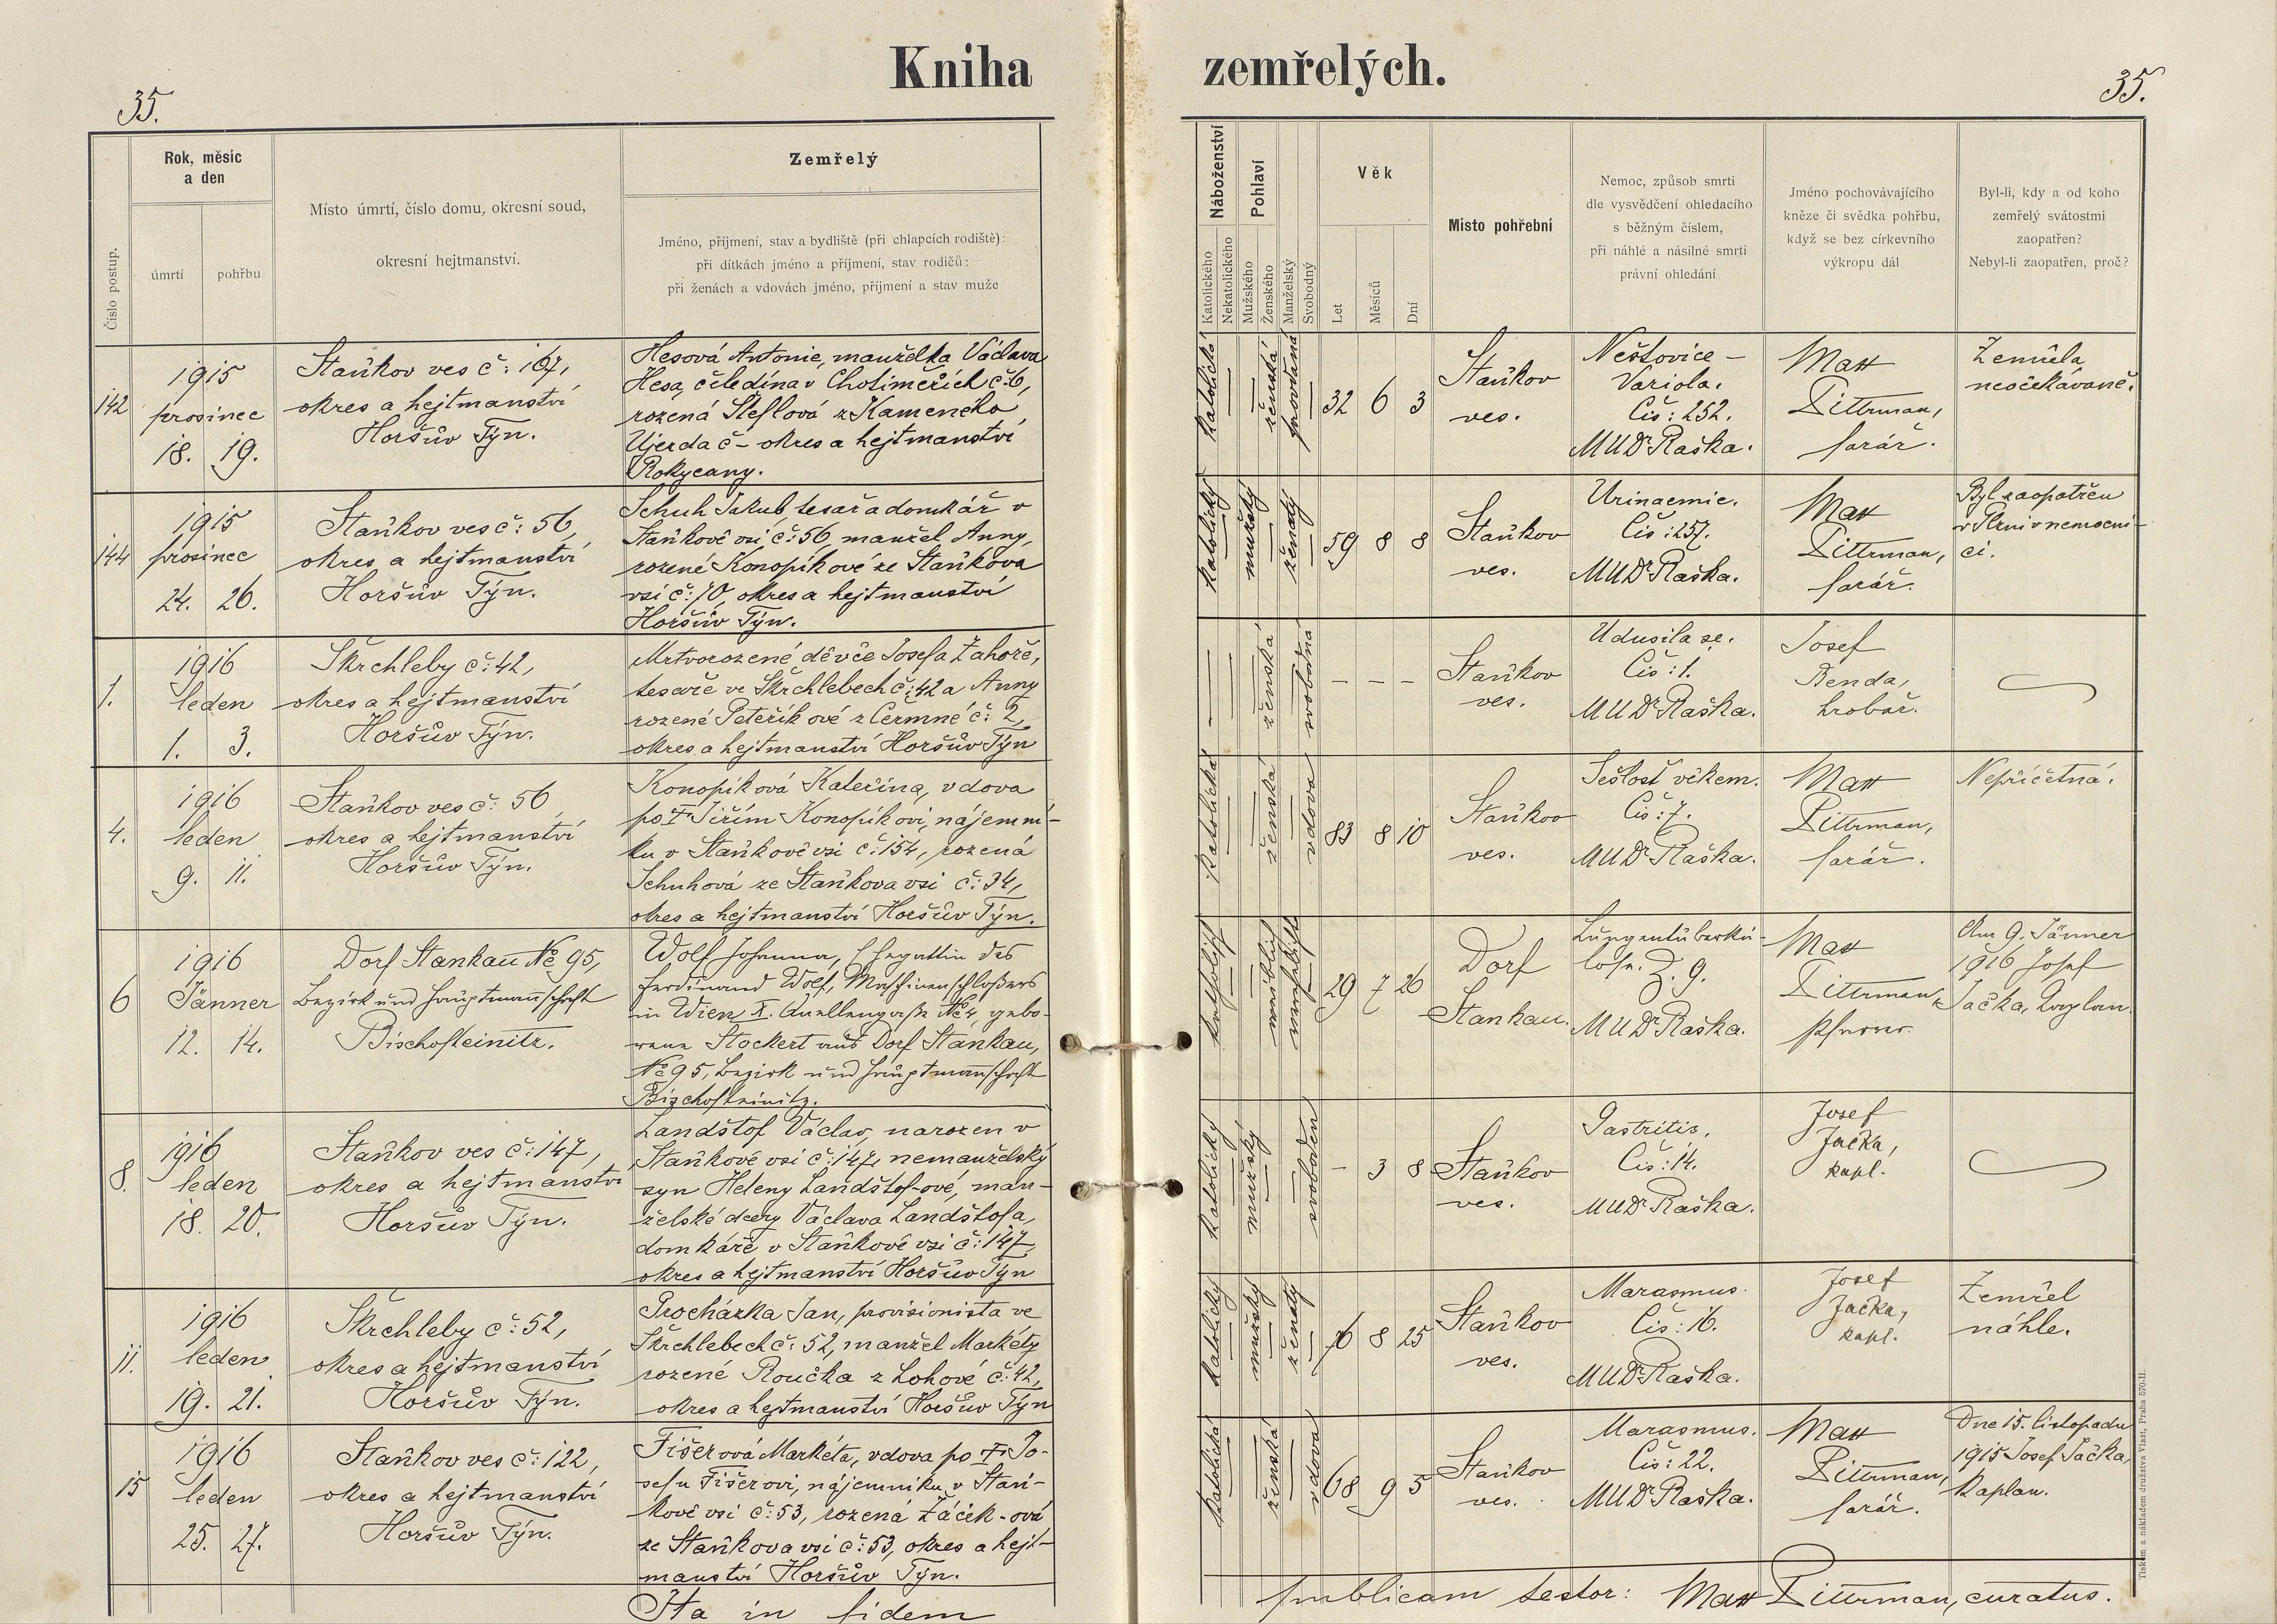 Kniha zemřelých.
35.
35.
Číslo postup.
Rok, měsíc
a den
úmrtí
pohřbu
Místo úmrtí, číslo domu, okresní soud,
okresní hejtmanství.
Zemřelý
Jméno, příjmení, stav a bydliště (při chlapcích rodiště):
při dítkách jméno a příjmení, stav rodičů:
při ženách a vdovách jméno, příjmení a stav muže
Náboženství
Katolického
Nekatolického
Pohlaví
Mužského
Ženského
Manželský
Svobodný
Věk
Let
Měsíců
Dní
Místo pohřební
Nemoc, způsob smrti
dle vysvědčení ohledacího
s běžným číslem,
při náhlé a násilné smrti
právní ohledání
Jméno pochovávajícího
kněze či svědka pohřbu,
když se bez církevního
výkropu dál
Byl-li, kdy a od koho
zemřelý svátostmi
zaopatřen?
Nebyl-li zaopatřen, proč?
142
1915
prosinec
18. 19.
Staňkov ves č: 167,
okres a hejtmanství
Horšův Týn.
Hesová Antonie, manželka Václava
Hesa, čeledína v Chotiměřích č:6,
rozená Šteflová z Kameného
Újezda č – okres a hejtmanství
Rokycany.
katolická
ženská
provdaná
32 6 3
Staňkov
ves.
Neštovice –
Variola.
Čís: 252.
MUDr Raška.
Matt
Pittrman,
farář.
Zemřela
neočekávaně.
144
1915
prosinec
24. 26.
Staňkov ves č: 56,
okres a hejtmanství
Horšův Týn.
Schuh Jakub, tesař a domkář v
Staňkově vsi č: 56, manžel Anny,
rozené Konopíkové ze Staňkova
vsi č: 10, okres a hejtmanství
Horšův Týn.
katolický
mužský
ženatý
59 8 8
Staňkov
ves.
Urinaemie.
Čís: 257.
MUDr Raška.
Matt
Pittrman,
farář.
Byl zaopatřen
v Plzni v nemocni-
ci.
1.
1916
leden
1. 3.
Škrchleby č: 42,
okres a hejtmanství
Horšův Týn.
Mrtvorozené děvče Josefa Zahoře,
tesaře ve Škrchlebech č: 42 a Anny
rozené Peteříkové z Čermné č: 2,
okres a hejtmanství Horšův Týn
ženská
svobodná
– – –
Staňkov
ves.
Udusila se.
Čís: 1.
MUDr Raška.
Josef
Benda,
hrobař.
4.
1916
leden
9. 11.
Staňkov ves č: 56
okres a hejtmanství
Horšův Týn.
Konopíková Kateřina, vdova
po † Jiřím Konopíkovi, nájemní-
ku v Staňkově vsi č: 154, rozená
Schuhová ze Staňkova vsi č: 34,
okres a hejtmanství Horšův Týn.
katolická
ženská
vdova
83 8 10
Staňkov
ves.
Sešlosť věkem.
Čís: 7.
MUDr Raška.
Matt
Pittrman,
farář.
Nepříčetná.
6
1916
Jänner
12. 14.
Dorf Stankau No 95,
Bezirk und Hauptmannschaft
Bischofteinitz.
Wolf Johanna, Ehegattin des
Ferdinand Wolf, Maschinenschloßers
in Wien X. Quellengasse No 4, gebo-
rene Stockert aus Dorf Stankau,
No 95, Bezirk und Hauptmannschaft
Bischofteinitz.
katholisch
weiblich
verehelicht
29 7 26
Dorf
Stankau.
Lungentuberku-
lose. Z. 9.
MUDr Raška.
Matt
Pittrman,
Pfarrer.
Am 9. Jänner
1916 Josef
Jačka, Kaplan.
8.
1916
leden
18. 20.
Staňkov ves č: 147,
okres a hejtmanství
Horšův Týn.
Landštof Václav, narozen v
Staňkově vsi č: 147, nemanželský
syn Heleny Landštof-ové, man-
želské dcery Václava Landštofa,
domkáře v Staňkově vsi č: 147,
okres a hejtmanství Horšův Týn
katolický
mužský
svoboden
– 3 8
Staňkov
ves.
Gastritis.
Čís: 14.
MUDr Raška.
Josef
Jačka,
kapl.
11.
1916
leden
19. 21.
Škrchleby č: 52,
okres a hejtmanství
Horšův Týn.
Procházka Jan, provisionista ve
Škrchlebech č: 52, manžel Markéty
rozené Roučka z Lohové č: 42,
okres a hejtmanství Horšův Týn
katolický
mužský
ženatý
76 8 25
Staňkov
ves.
Marasmus.
Čís: 16.
MUDr Raška.
Josef
Jačka,
kapl.
Zemřel
náhle.
15
1916
leden
25. 27.
Staňkov ves č: 122,
okres a hejtmanství
Horšův Týn.
Fišerová Markéta, vdova po † Jo-
sefu Fišerovi, nájemníku v Staň-
kově vsi č: 53, rozená Žáček-ová
ze Staňkova vsi č: 53, okres a hejt-
manství Horšův Týn.
katolická
ženská
vdova
68 9 5
Staňkov
ves.
Marasmus.
Čís: 22.
MUDr Raška.
Matt
Pittrman,
farář.
Dne 15. listopadu
1915 Josef Jačka,
kaplan.
Ita in fidem publicam testor: Matt Pittrman, curatus.
Tiskem a nákladem družstva Vlast, Praha 570-II.